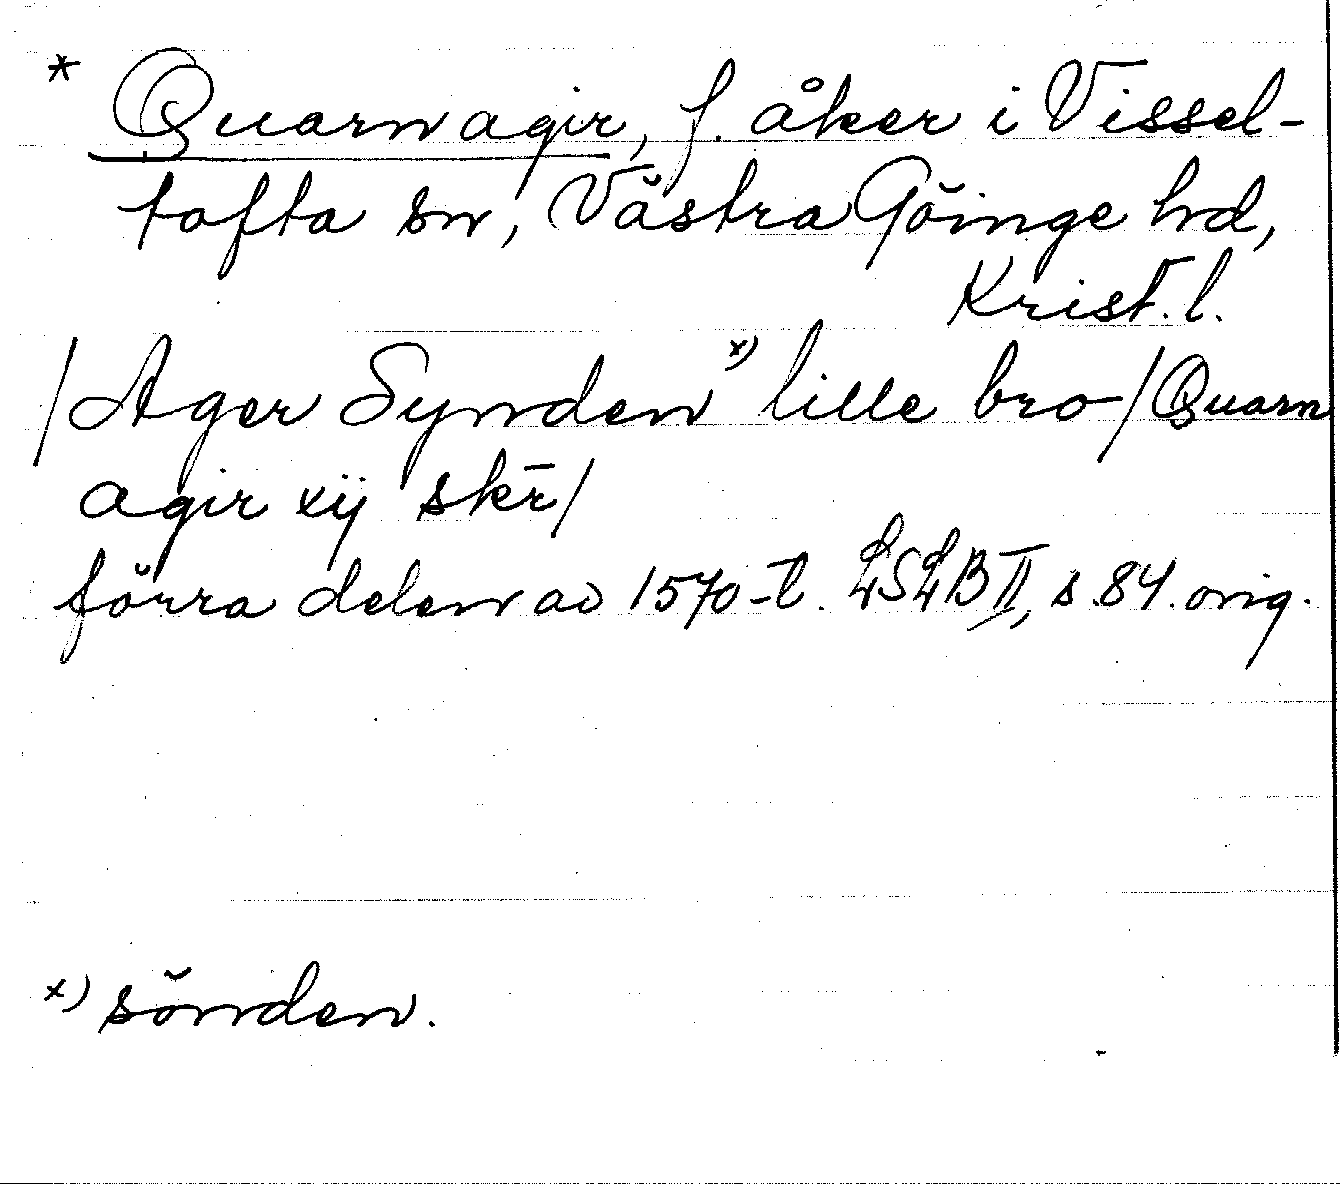 * Quarnagir, f. åker i Vissel-
tofta sn, Västra Göinge hrd,
Krist. l.
/Ager Synden x) lille bro/Quarn
agir xij skr̄/
förra delen av 1570-t. LSLB II, s. 84. orig.
x) sönden.